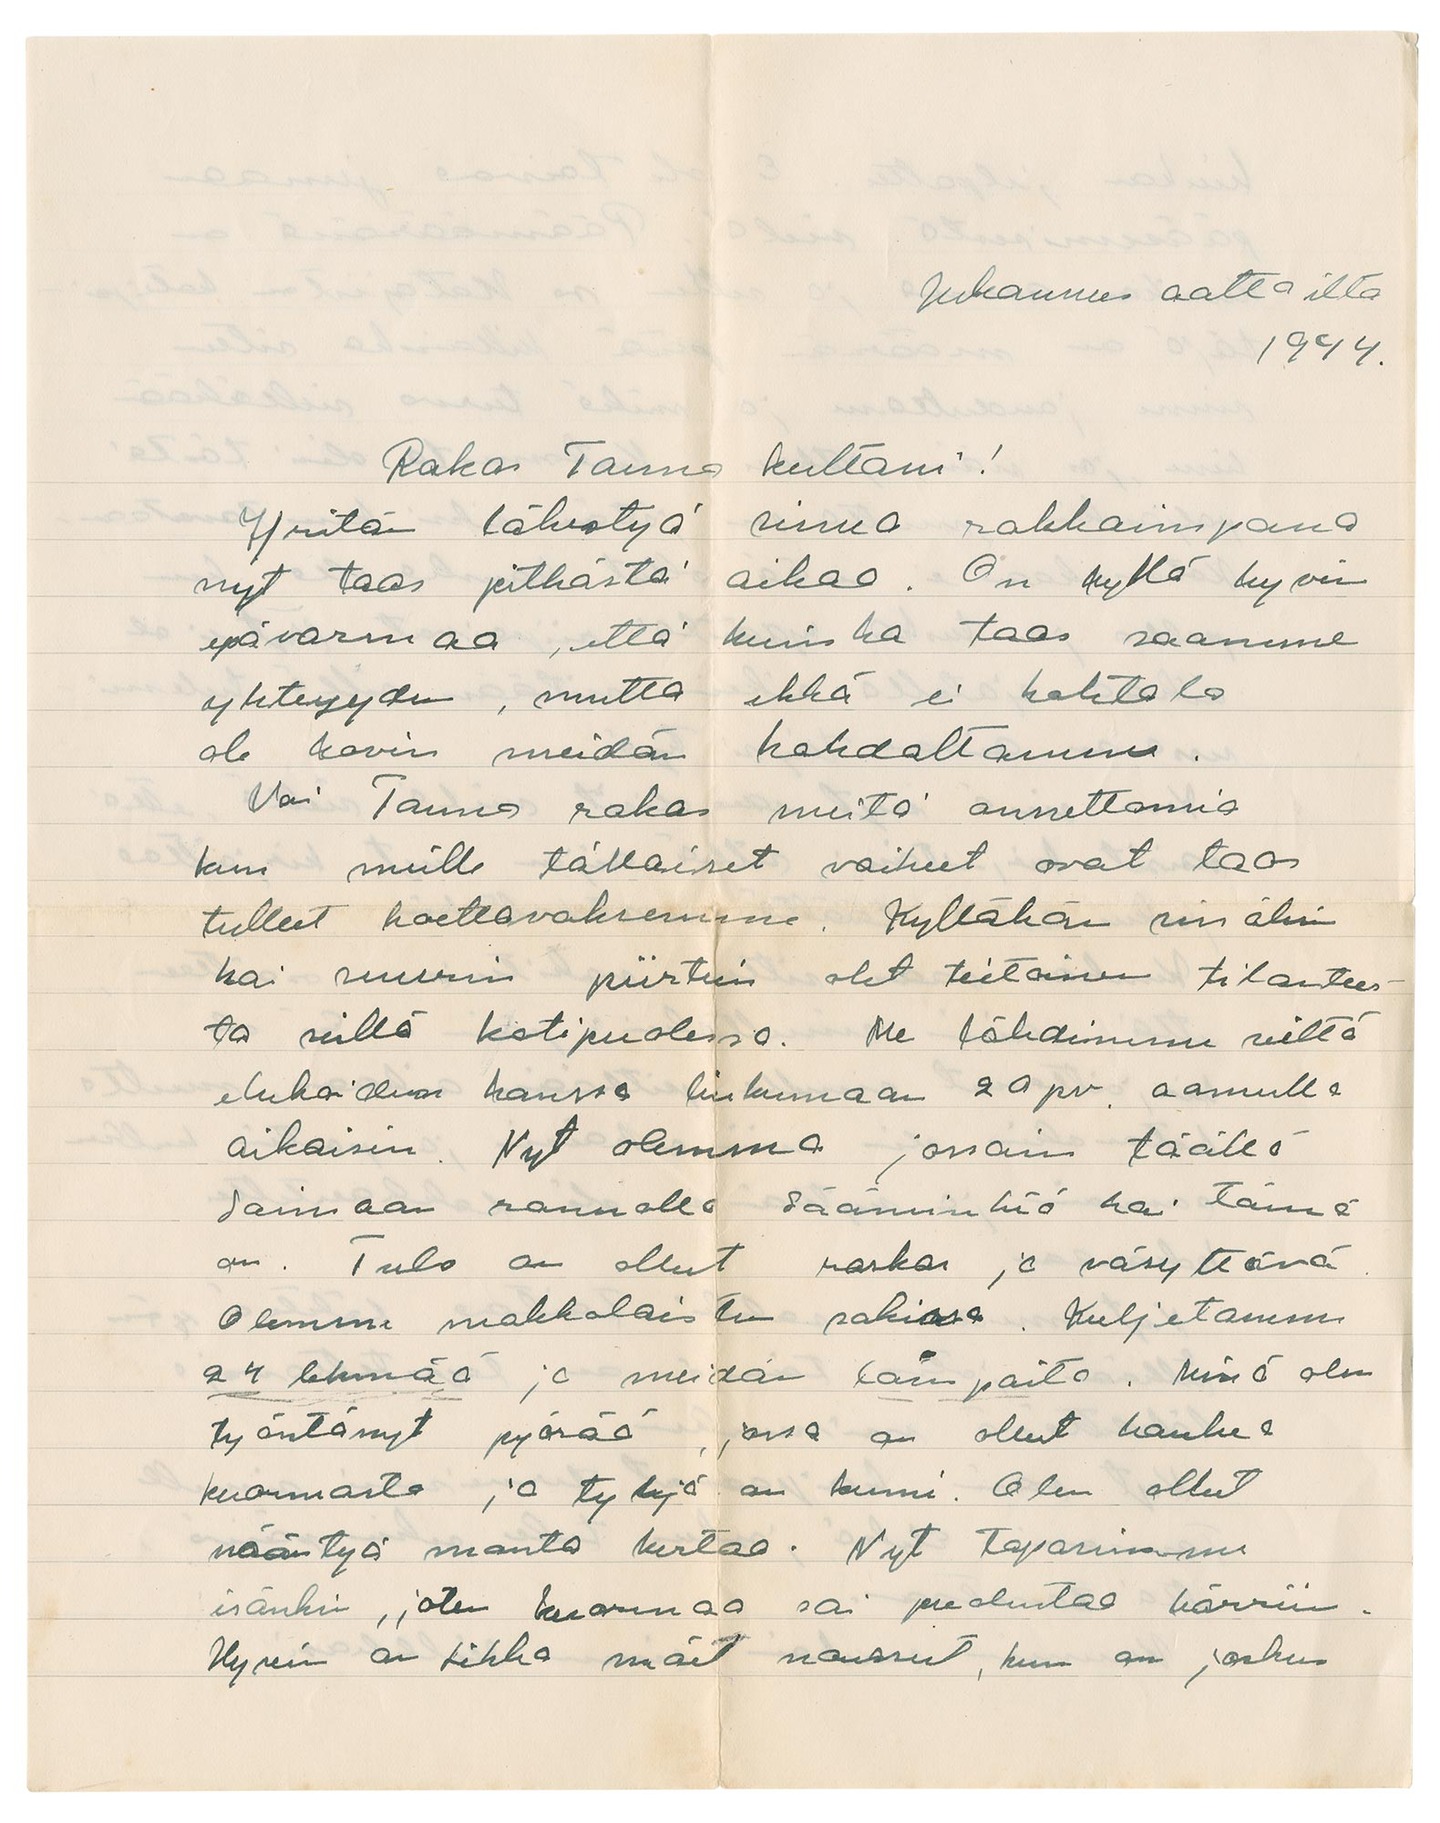 Juhannus aatto ilta
1944.
Rakas Tauno kultani!
Yritän lähestyä sinua rakkaimpana
nyt taas pitkästä aikaa. On kyllä hyvin
epävarmaa, että kuinka taas saamme
yhteyyden, mutta ehkä ei kohtalo
ole kovin meidän kohdaltamme.
Voi Tauno rakas meitä onnettomia
kun meille tällaiset vaiheet ovat taas
tulleet koettavaksemme. Kyllähän sinäkin
kai suurin piirtein olet tietoinen tilantees-
ta siellä kotipuolessa. Me lähdimme sieltä
elukoiden kanssa liikumaan 20 pv. aamulla
aikaisin. Nyt olemme jossain täällä
Saimaan rannalla Sääminkiä kai tämä
on. Tulo on ollut raskas ja väsyttävä.
Olemme makkolaisten sakissa. Kuljetamme
24 lehmää ja meidän lampaita. Minä olen
työntänyt pyörää, jossa on ollut hankea
kuormasta ja tyhjä on kumi. Olen ollut
nääntyä monta kertaa. Nyt tapasimme
isänkin, joten kuormaa sai puolustaa kärriin.
Hyvin on tikka mäet noussut, kun on joskus